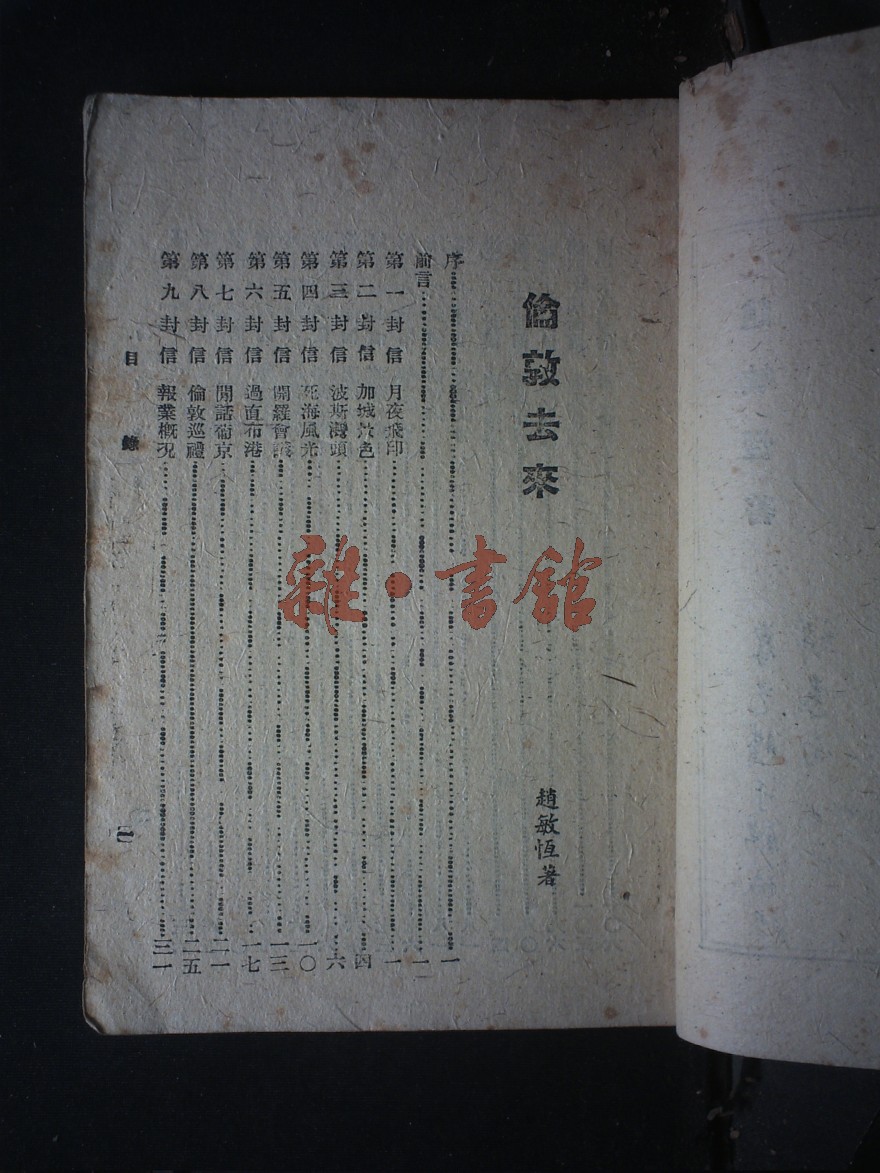 倫敦去來
趙敏恆著
序 一
前言 一
第一封信 月夜飛印 一
第二封信 加城景色 四
第三封信 波斯灣頭 六
第四封信 死海風光 一〇
第五封信 開羅會議 一三
第六封信 過直布港 一七
第七封信 閒話葡京 二一
第八封信 倫敦巡禮 二五
第九封信 報業概況 三一
目錄
【一】
雜·書館